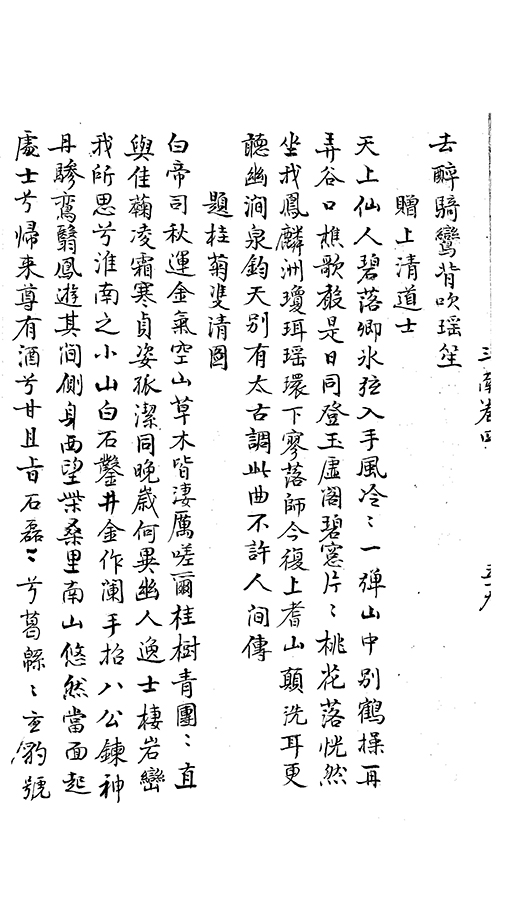 去醉騎鸞背吹瑶笙
贈上清道士
天上仙人碧落卿氷弦入手風冷〻一弹山中别鶴操再
弄谷口樵歌殽是日同登玉虚阁碧窓片〻桃花落恍然
坐我鳳麟洲瓊珥瑶環下寥落師今復上耆山顛洗耳更
聽幽澗泉鈞天别有太古調此曲不許人间傳
題桂菊雙清圖
白帝司秋運金氣空山草木皆凄厲嗟爾桂樹青團〻直
與佳菊凌霜寒貞姿孤潔同晚歲何異幽人逸士棲岩巒
我所思兮淮南之小山白石鑿井金作阑手招八公鍊神
丹驂鸞翳鳳遊其间側身西望柴桑里南山悠然當面起
處士兮歸来尊有酒兮甘且旨石磊〻兮葛緜〻玄豹號